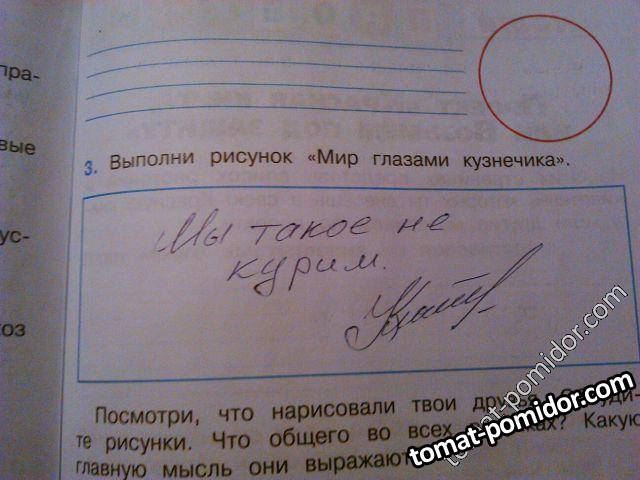 пра-
вые
ус-
оз
3. Выполни рисунок «Мир глазами кузнечика».
Мы такое не
курим.
Посмотри, что нарисовали твои друзья. Обсуди-
те рисунки. Что общего во всех рисунках? Какую
главную мысль они выражают
tomat-pomidor.com
tomat-pomidor.com